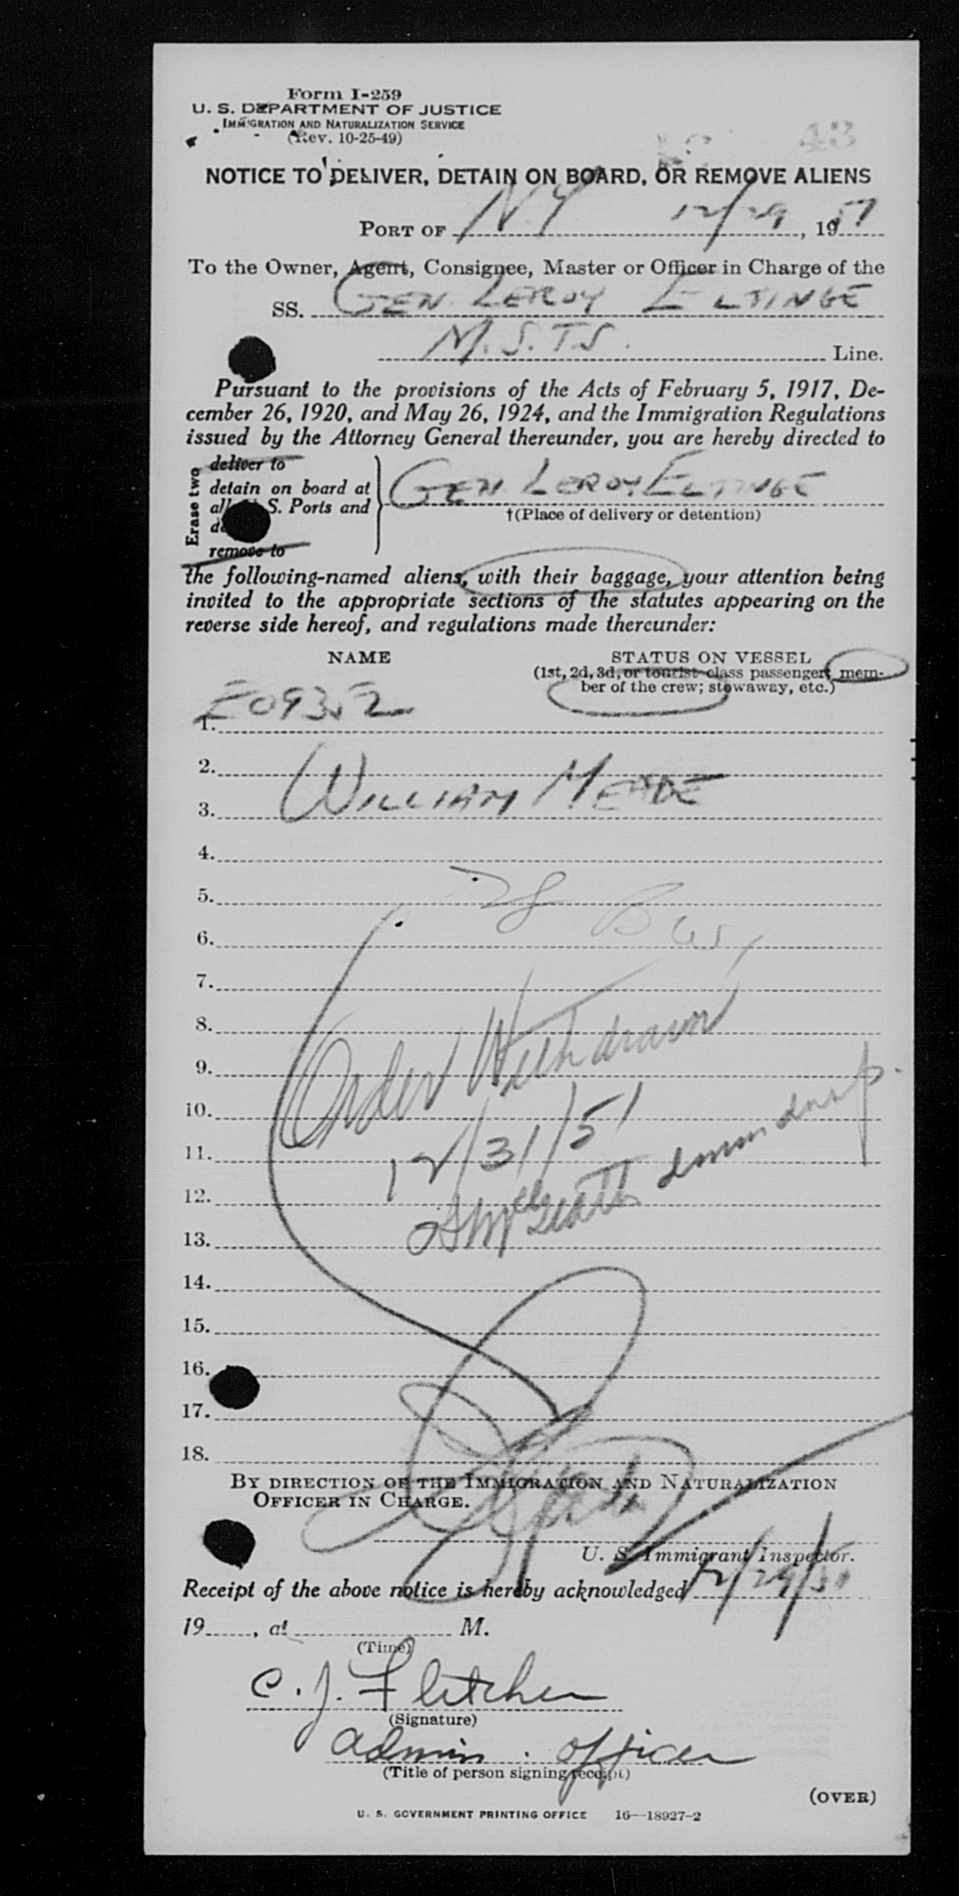 Form I-259
U. S. DEPARTMENT OF JUSTICE
IMMIGRATION AND NATURALIZATION SERVICE
(Rev. 10-25-49)
43
NOTICE TO DELIVER, DETAIN ON BOARD, OR REMOVE ALIENS
PORT OF N.Y 12/29, 1951
To the Owner, Agent, Consignee, Master or Officer in Charge of the
SS. GEN. LEROY ELTINGE
M.S.T.S. Line.
Pursuant to the provisions of the Acts of February 5, 1917, De-
cember 26, 1920, and May 26, 1924, and the Immigration Regulations
issued by the Attorney General thereunder, you are hereby directed to
Erase two
deliver to
detain on board at
all S. Ports and
remove to
GEN. LEROY ELTINGE
†(Place of delivery or detention)
the following-named aliens, with their baggage, your attention being
invited to the appropriate sections of the statutes appearing on the
reverse side hereof, and regulations made thereunder:
NAME STATUS ON VESSEL
(1st, 2d, 3d, or tourist class passenger; mem-
ber of the crew; stowaway, etc.)
E09352
1.
2.
WILLIAM MEADE
3.
4.
5.
6.
7.
8.
Order Withdrawn
9.
10.
12/31/51
11.
12.
13.
14.
15.
16.
17.
18.
BY DIRECTION OF THE IMMIGRATION AND NATURALIZATION
OFFICER IN CHARGE.
U. S. Immigrant Inspector.
Receipt of the above notice is hereby acknowledged 12/29/51
19, at M.
(Time)
C. J. Fletcher
(Signature)
Admin. Officer
(Title of person signing receipt)
(OVER)
U. S. GOVERNMENT PRINTING OFFICE 16—18927-2